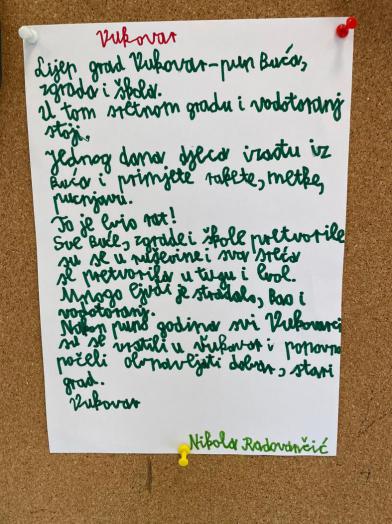 Vukovar
Lijep grad Vukovar-pun kuća,
zgrada i škola.
U tom sretnom gradu i vodotoranj
stoji.
Jednog dana djeca izađu iz
kuća i primjete rakete, metke,
pucnjavu.
To je bio rat!
Sve kuće, zgrade i škole pretvorile
su se u ruševine i sva sreća
se pretvorila u tugu i bol.
Mnogo ljudi je stradalo, kao i
vodotoranj.
Nakon puno godina svi Vukovarci
su se vratili u Vukovar i ponovno
počeli obnavljati dobar, stari
grad.
Vukovar
Nikola Radovančić